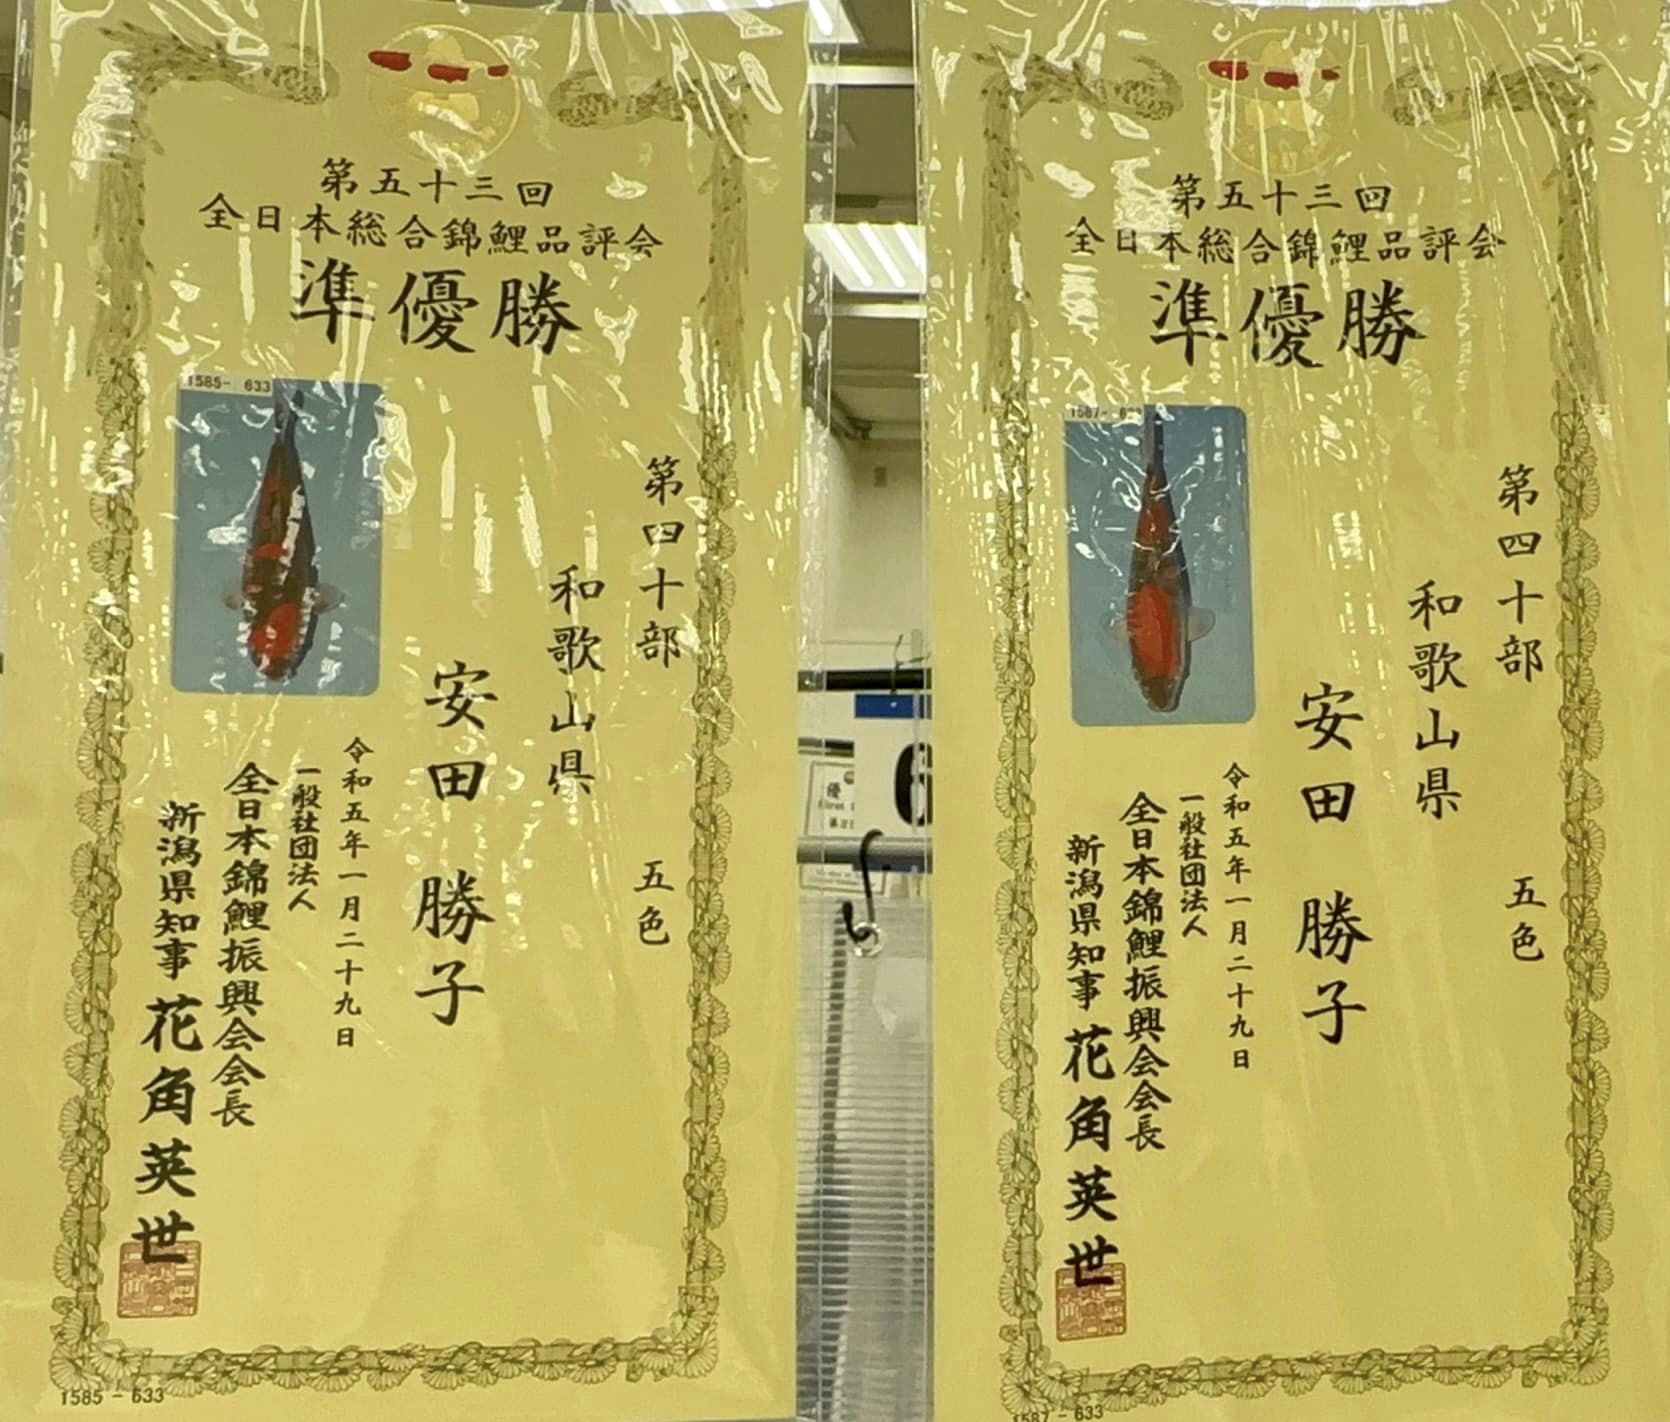 第五十三回
全日本総合錦鯉品評会
準優勝
1585- 633
第四十部 五色
和歌山県
安田 勝子
令和五年一月二十九日
一般社団法人
全日本錦鯉振興会会長
新潟県知事 花角英世
1585 - 633
第五十三回
全日本総合錦鯉品評会
準優勝
1587- 633
第四十部 五色
和歌山県
安田 勝子
令和五年一月二十九日
一般社団法人
全日本錦鯉振興会会長
新潟県知事 花角英世
1587 - 633
6
優